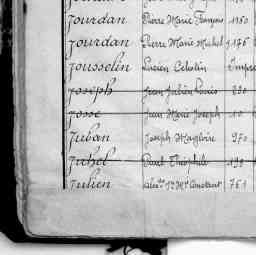 Jourdan Pierre Marie François 1150
Jourdan Pierre Marie Michel 1176
Jousselin Lucien Célestin
Joseph Jean Julien Louis 890
Josse Jean Marie Joseph 10
Juban Joseph Magloire 970
Juhel Paul Théophile 198
Julien Constant 761